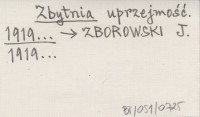 Zbytnia uprzejmość.
1919... → ZBOROWSKI J.
1919...
BI/051/0725